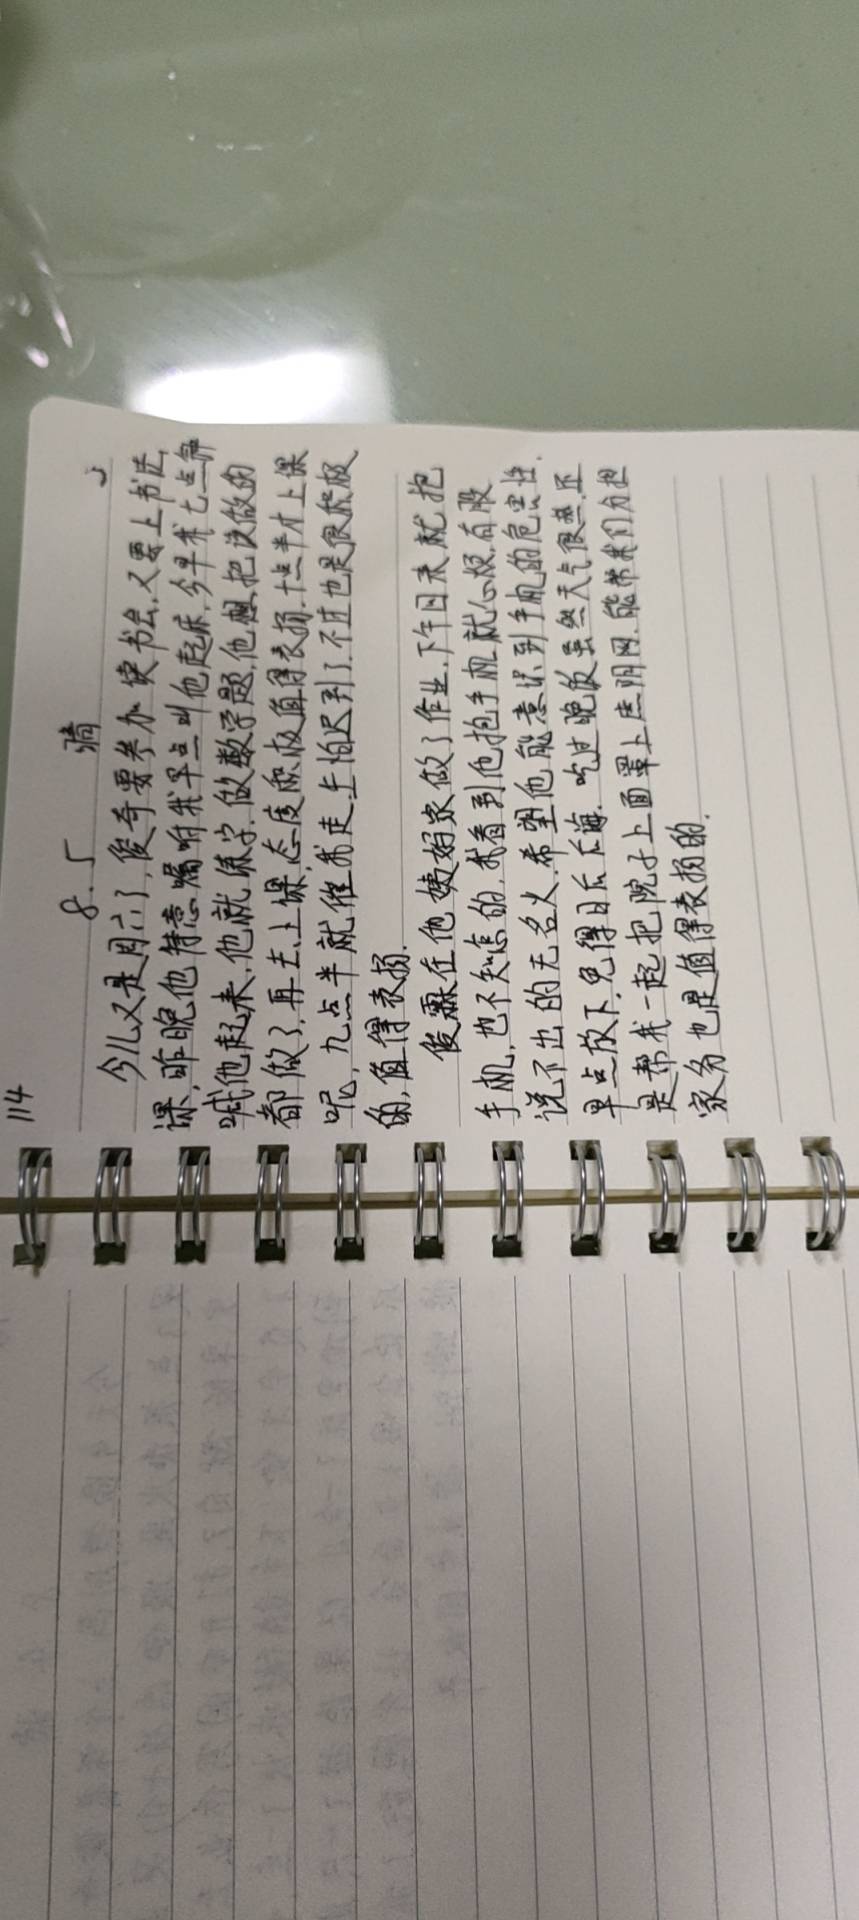 114
8.5 晴
今儿又是周六了,俊奇要参加读书会,又要上书法
课,昨晚他特意嘱咐我早点叫他起床,今早我七点就
喊他起来,他就练字,做数学题,他想把该做的
都做了,再去上课,态度积极值得表扬.十点半才上课
呢,九点半就催我走,生怕迟到了,不过也是很积极
的,值得表扬.
俊霖在他姨妈家做了作业,下午回来就抱
手机,也不知怎的,我看到他抱手机就心烦,有股
说不出的无名火,希望他能意识到手机的危害性,
早点放下,免得日后后悔.吃过晚饭虽然天气很热,还
是帮我一起把院子上面罩上遮阴网,能帮我们分担
家务也是值得表扬的.